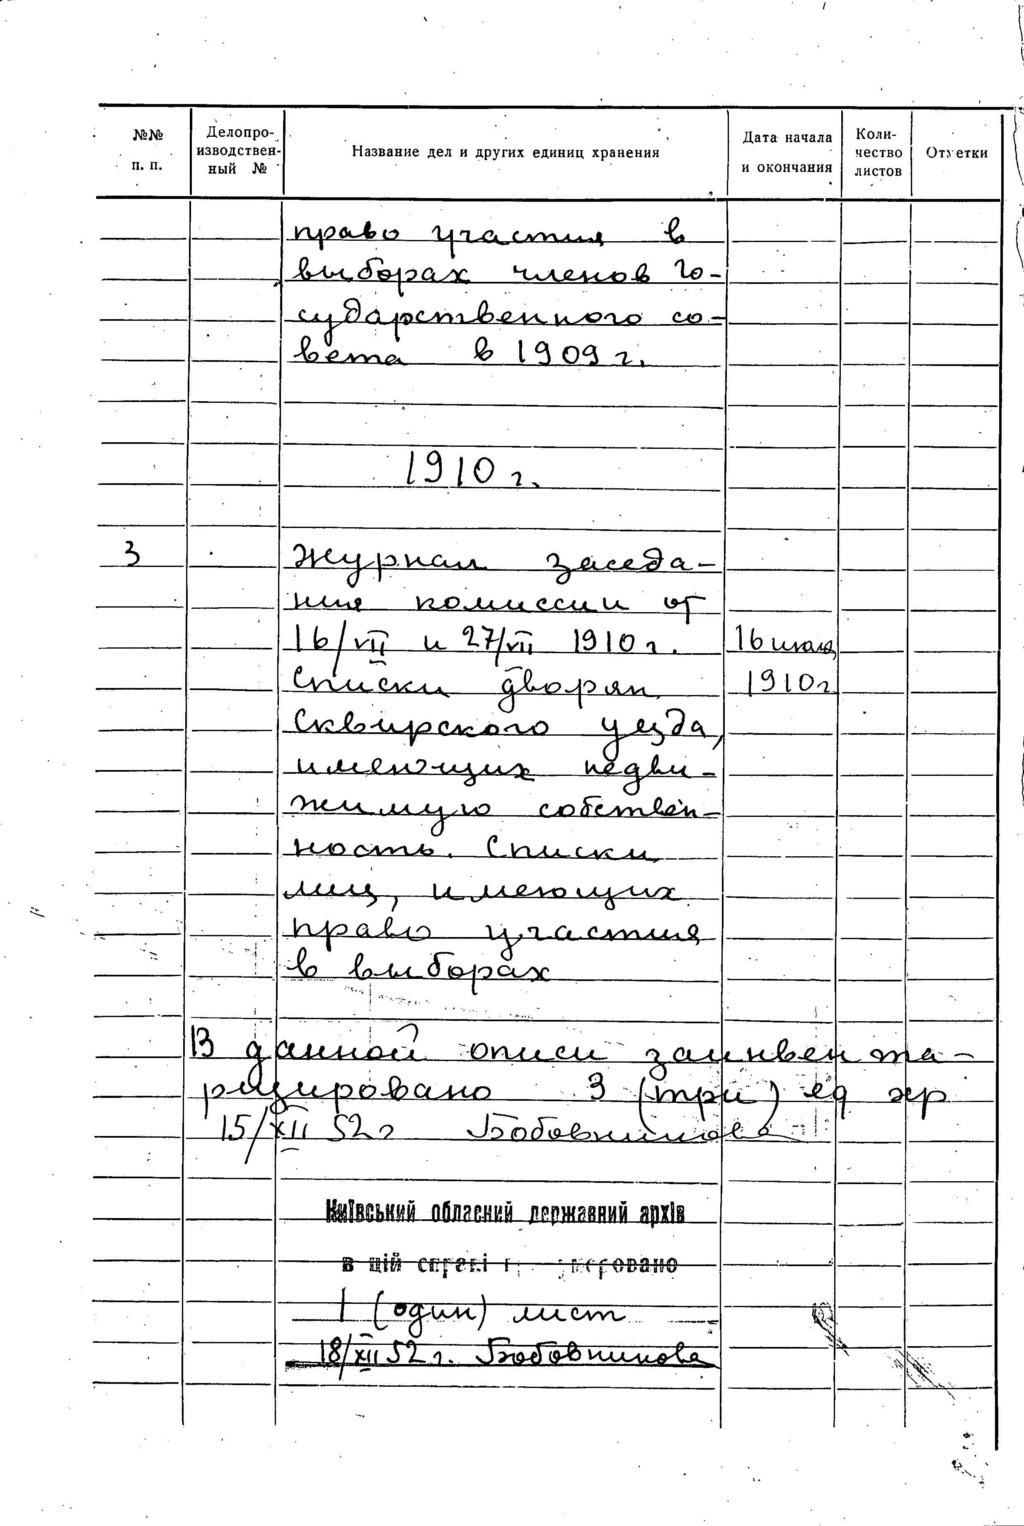 №№ п. п.
Делопро-
изводствен-
ный №
Название дел и других единиц хранения
Дата начала
и окончания
Коли-
чество
листов
Отметки
право участия в
выборах членов Го-
сударственного со-
вета в 1909 г.
1910 г.
3
Журнал заседа-
ния комиссии от
16/VII и 27/VII 1910 г.
16 июля
Списки дворян
1910 г
Сквирского уезда,
имеющих недви-
жимую собствен-
ность. Списки
лиц, имеющих
право участия
в выборах
В данной описи заинвента-
ризировано 3 (три) ед хр
15/XII 52 г Бобовникова
Київський обласний державний архів
в цій справі
1 (один) лист
18/XII 52 г. Бобовникова